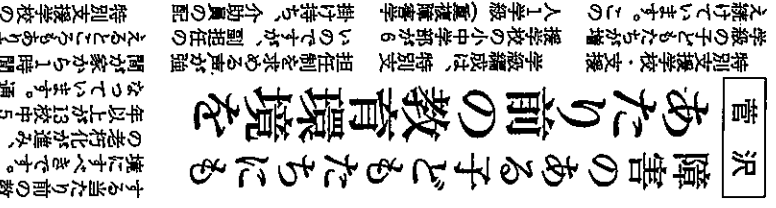 障害のある子どもたちにも
あたり前の教育環境を
菅沢
特別支援学校・支援
学級の子どもたちが増
え続けています。この
学級編成は、特別支
援学校の小中学部が6
人1学級（重複障害学
担任制を求める声が強
いのですが、副担任の
掛け持ち、介助員の配
する当たり前の教
境にすべきです。
の老朽化が進み、
年以上が13校中5
なっています。通
から1時間
えるところもあり
特別支援学校の